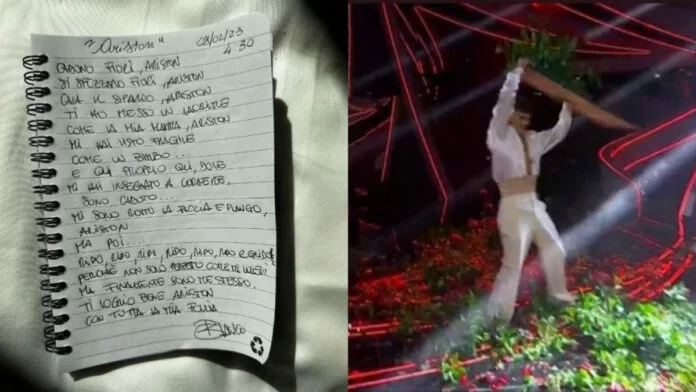 "Ariston" 08/02/23
4:30
CADONO FIORI, ARISTON
SI SFIORANO FIORI, ARISTON
QUA IL SIPARIO, ARISTON
TI HO MESSO IN LACRIME
COME LA MIA MAMMA, ARISTON
MI HAI VISTO FRAGILE
COME UN BIMBO...
E QUI PROPRIO QUI, DOVE
MI HAI INSEGNATO A CORRERE,
SONO CADUTO...
MI SONO ROTTO LA FACCIA E PIANGO,
ARISTON
MA POI...
RIDO, RIDO, RIDO, RIDO, RIDO, RIDO E
PERCHÉ NON SONO COME TE
MA FINALMENTE SONO ME STESSO.
TI VOGLIO BENE ARISTON
CON TUTTA LA MIA FOLLIA
BLANCO